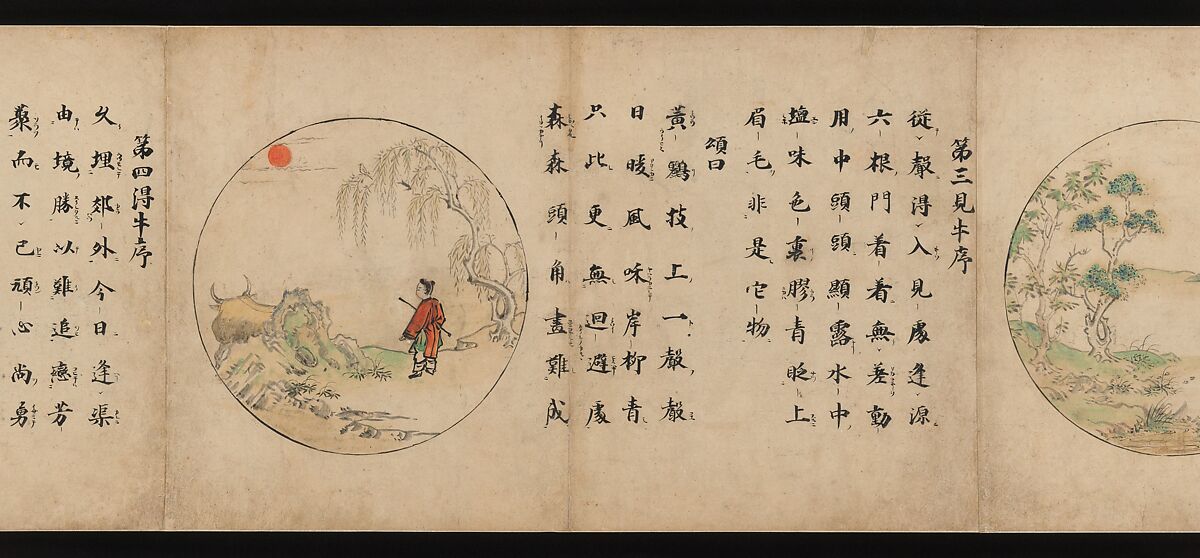 第三見牛序
從聲得入見處逢源
六根門着着無差動
用中頭頭顯露水中
塩味色裏膠青眨上
眉毛非是它物
頌曰
黃鸝技上一聲聲
日暖風和岸柳青
只此更無迴避處
森森頭角畫難成
第四得牛序
久埋郊外今日逢渠
由境勝以難追戀芳
藂而不已頑心尚勇